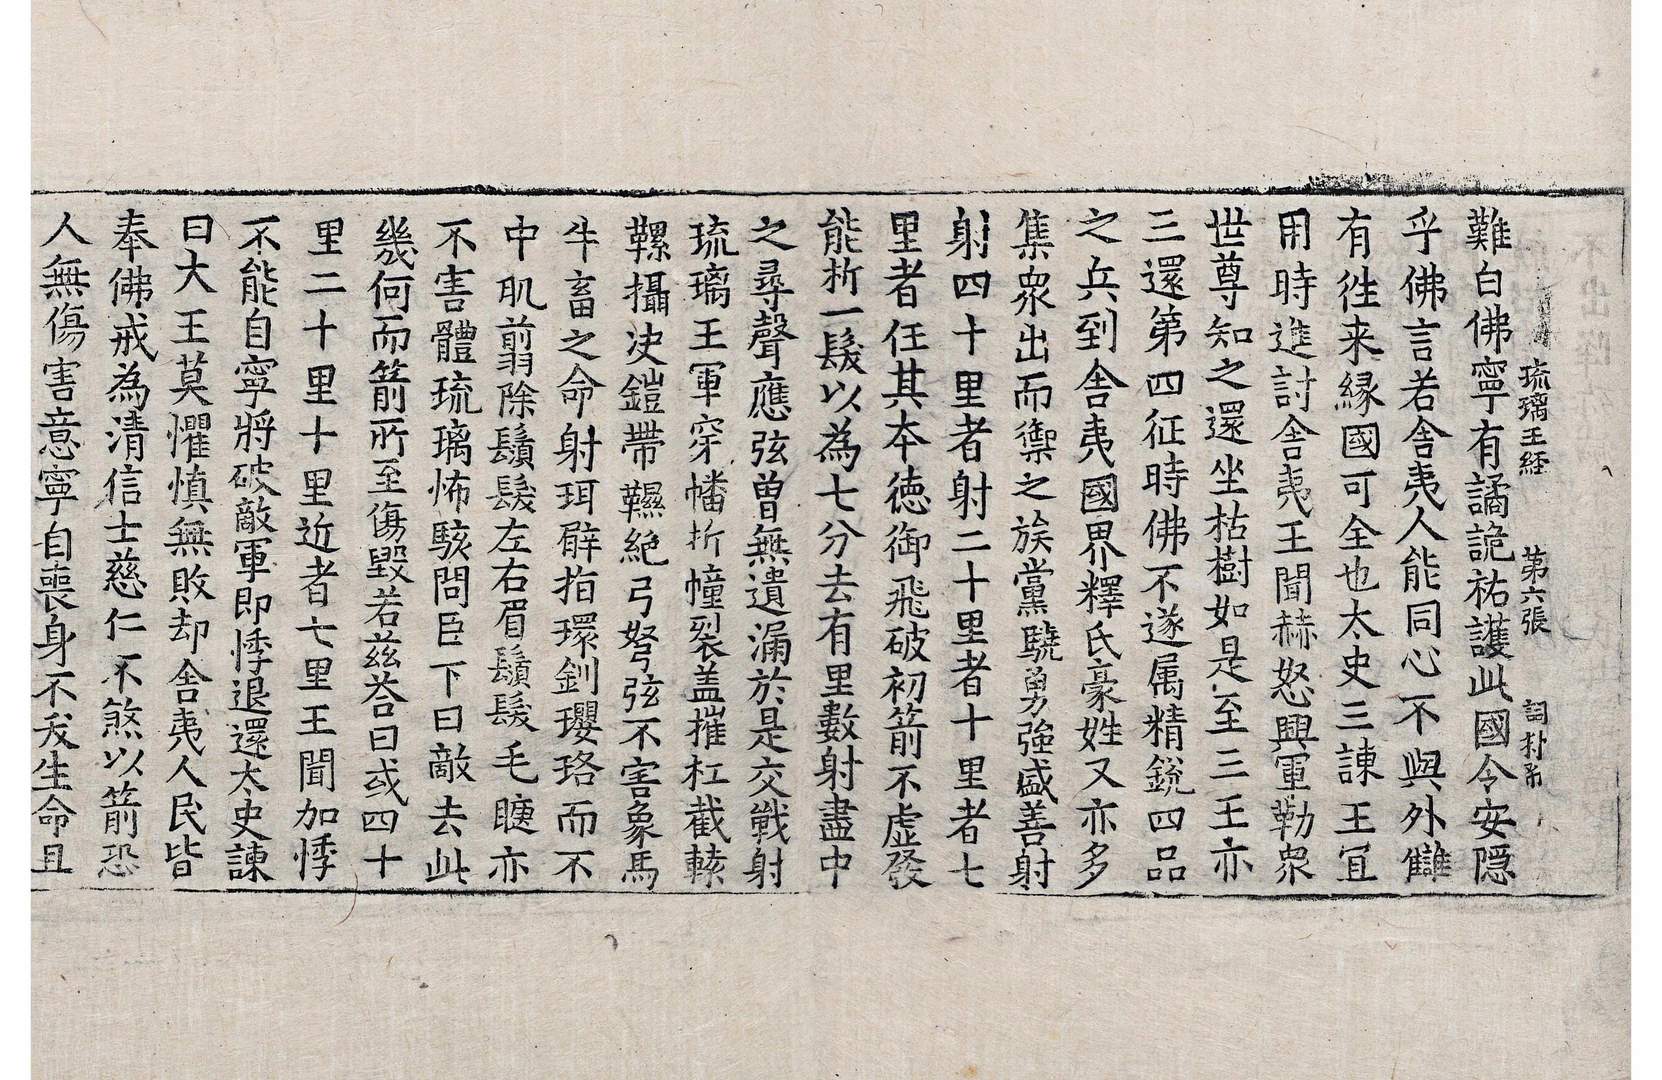 琉璃王経 第六張 詞
難白佛寧有譎詭祐護此國令安隠
乎佛言若舎夷人能同心不與外讎
有徃来縁國可全也太史三諫王宜
用時進討舎夷王聞赫怒興軍勒衆
世尊知之還坐枯樹如是至三王亦
三還第四征時佛不遂属精銳四品
之兵到舎夷國界釋氏豪姓又亦多
集衆出而禦之族黨驍勇強盛善射
射四十里者射二十里者十里者七
里者任其夲徳御飛破初箭不虚發
能析一髮以為七分去有里數射盡中
之尋聲應弦曽無遺漏於是交戰射
琉璃王軍穿幡折幢裂盖摧杠截轅
鞿攝决鎧帶韅絶弓弩弦不害象馬
牛畜之命射珥臂指環釧瓔珞而不
中肌前翦除鬚髮左右眉鬚髮毛睫亦
不害體琉璃怖駭問臣下曰敵去此
幾何而箭所至傷毀若兹荅曰或四十
里二十里十里近者七里王聞加悸
不能自寧將破敵軍即悸退還太史諫
曰大王莫懼慎無敗却舎夷人民皆
奉佛戒為清信士慈仁不煞以箭恐
人無傷害意寧自喪身不残生命且